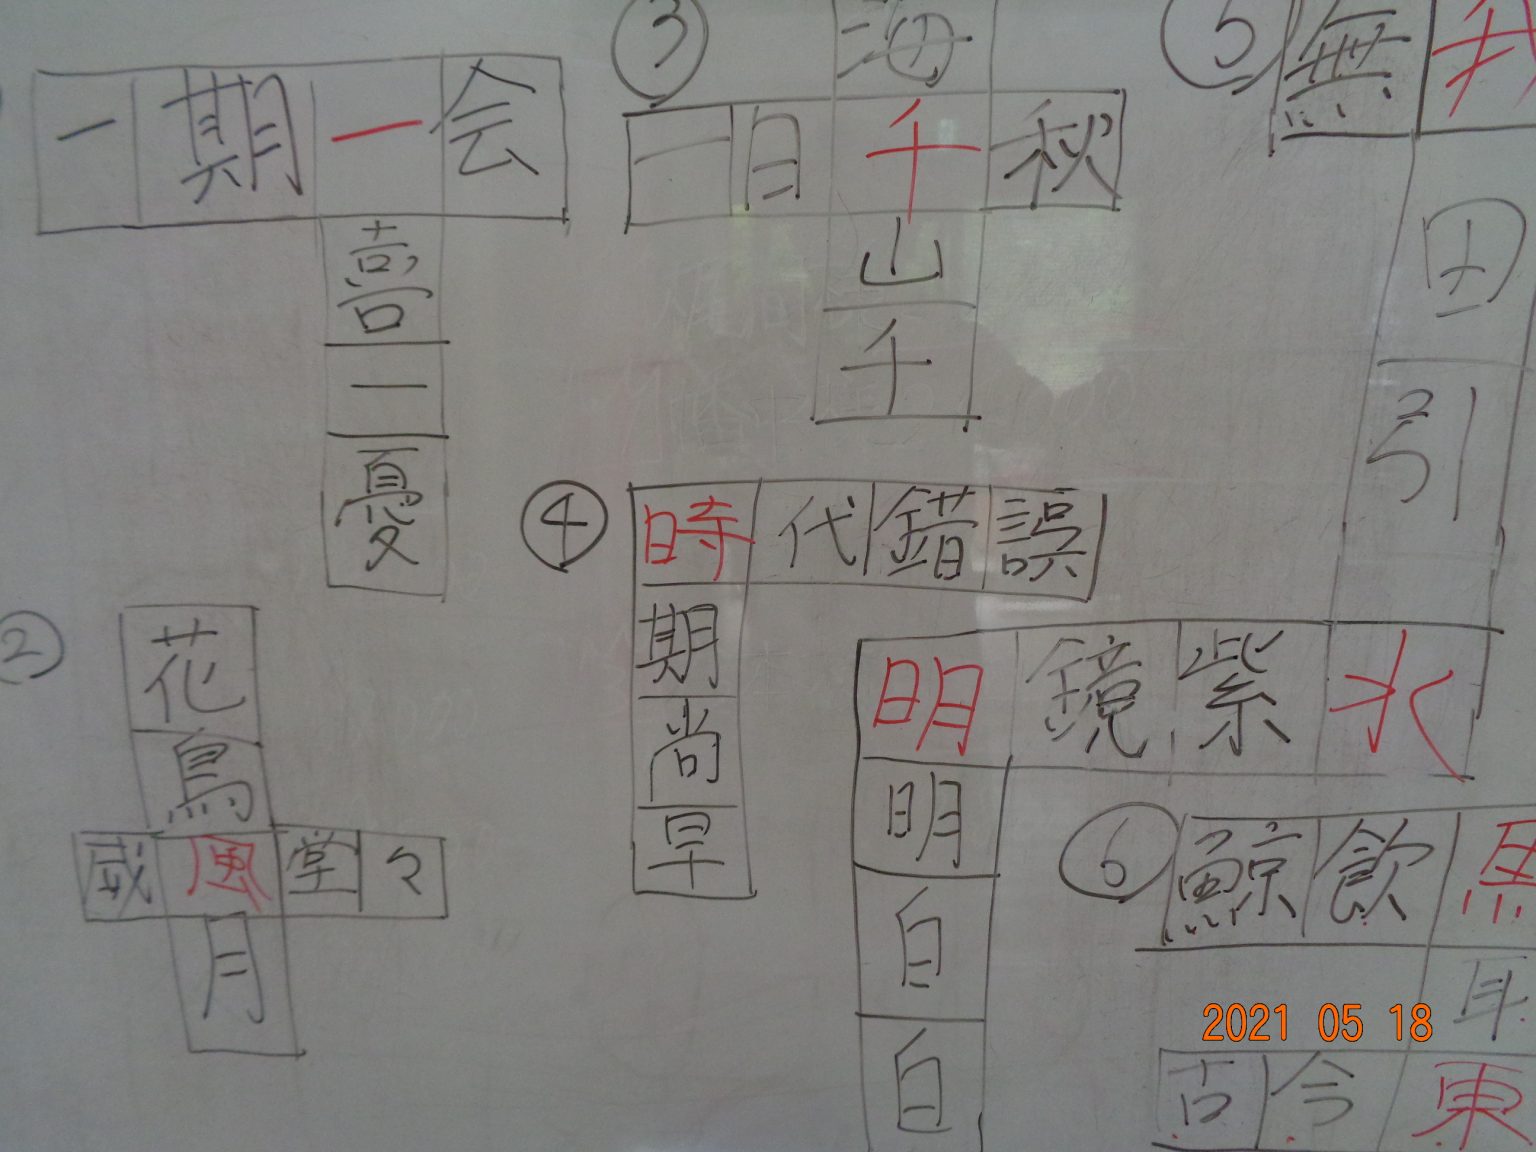 一期一会
喜
一
憂
②
花
鳥
威風堂々
月
③
海
一日千秋
山
千
④
時代錯誤
期
尚
早
⑤
無我
田
引
明鏡紫水
明
白
白
⑥
鯨飲馬
耳
古今東
2021 05 18